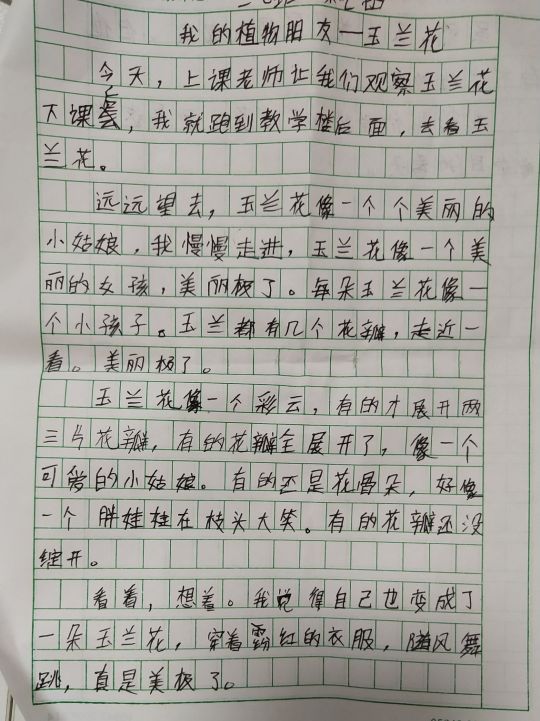 我的植物朋友—玉兰花
今天，上课老师让我们观察玉兰花
下课，我就跑到教学楼后面，去看玉
兰花。
远远望去，玉兰花像一个个美丽的
小姑娘，我慢慢走进，玉兰花像一个美
丽的女孩，美丽极了。每朵玉兰花像一
个小孩子。玉兰都有几个花瓣，走近一
看。美丽极了。
玉兰花像一个彩云，有的才展开两
三片花瓣，有的花瓣全展开了，像一个
可爱的小姑娘。有的还是花骨朵，好像
一个胖娃挂在枝头大笑。有的花瓣还没
绽开。
看着，想着。我觉得自己也变成了
一朵玉兰花，穿着粉红的衣服，随风舞
跳，真是美极了。